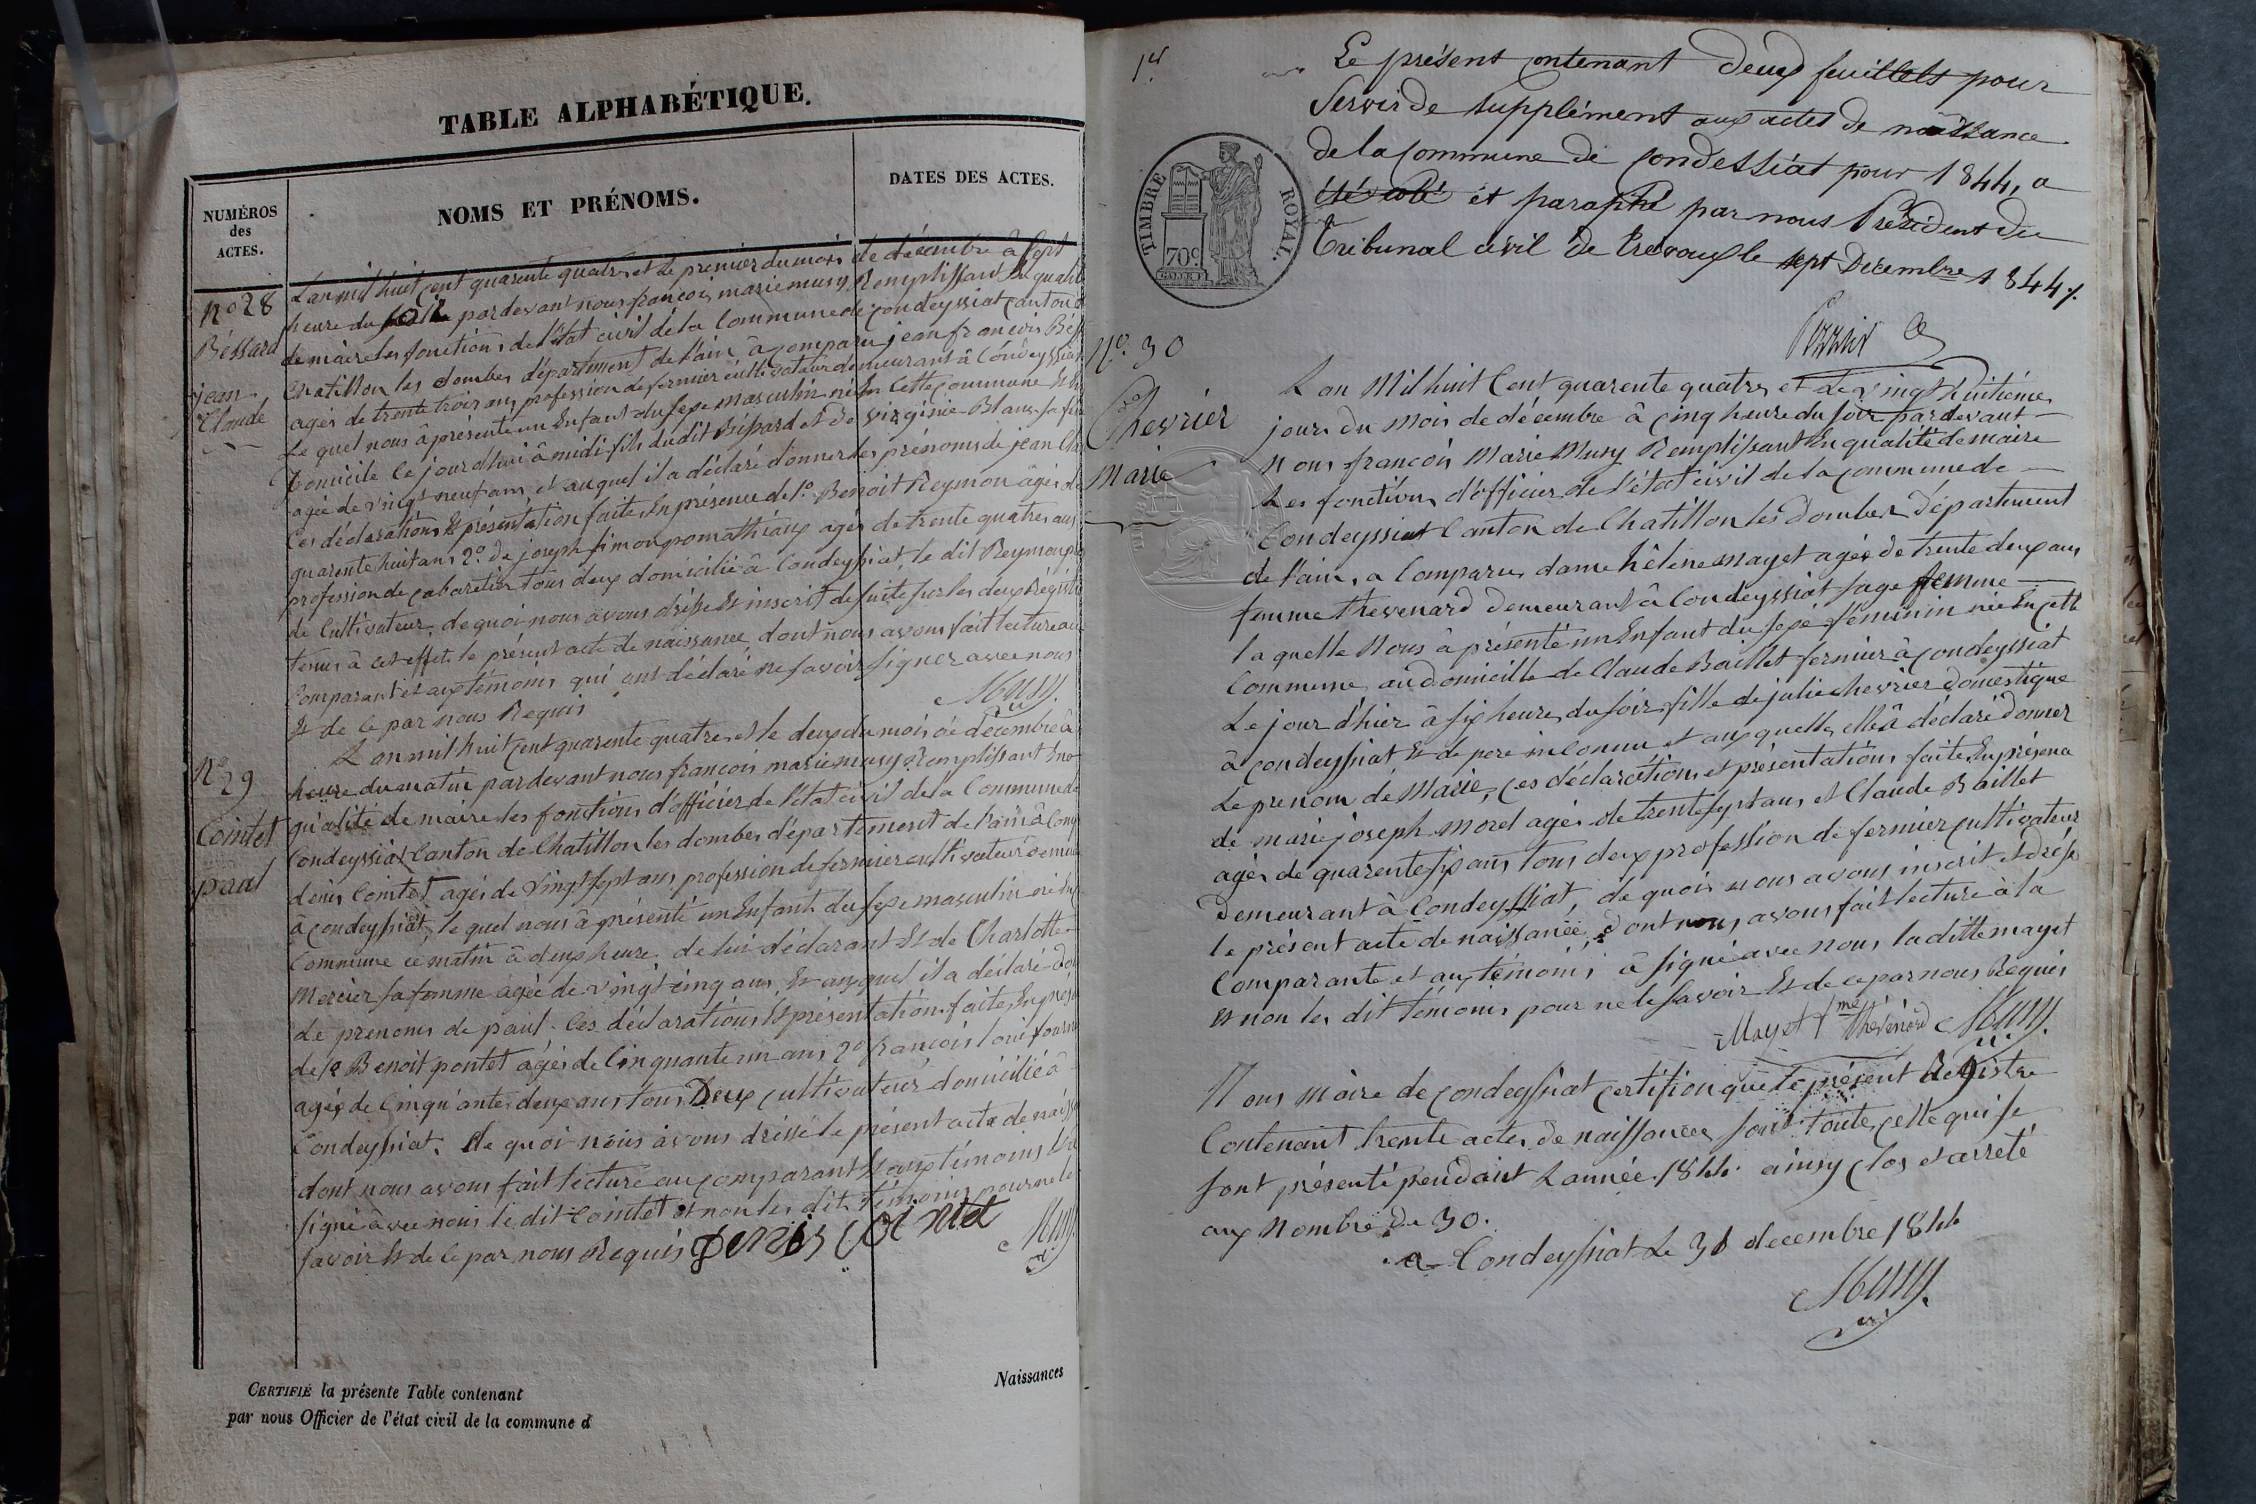 TABLE ALPHABÉTIQUE.
NUMÉROS
des
ACTES.
NOMS ET PRÉNOMS.
DATES DES ACTES.
No 28
Béssard
jean
Claude
L'an mil huit cent quarente quatre et le premier du mois de décembre à sept
heure du soir pardevant nous françois marie musy Remplissant En qualité
de maire les fonctions de l'état civil de la Commune de condeyssiat canton d
Chatillon les dombes département de l'ain à comparu jean françois Bés
agés de trente trois ans profession de fermier cultivateur demeurant à Condeyssiat
Le quel nous à présenté un Enfant du sexe masculin né En Cette Commune
Domicile ce jourd'hui à midi fils du dit Béssard et de virginie Blanc sa fe
agée de vingt neuf ans, et auquel il a déclaré donner les prénoms de jean Cla
Ces déclarations Et présentation faite En présence de 1o. Benoit Reymon âgés de
quarente huit ans 2o. De joseph simon pomathiaux agés de trente quatre ans
profession de cabaretier tous deux domicilié à Condeyssiat, le dit Reymon p
de Cultivateur, de quoi nous avons dréssé Et inscrit de suite sur les deux Régistre
tenus à cet effet le présent acte de naissance, dont nous avons fait lecture au
Comparant et aux témoins qui ont déclaré ne savoir signer avec nous
Et de ce par nous Requis
Musy
No
29
Cointet
paul
L an mil huit cent quarente quatre et le deux du mois de décembre à
heure du matin pardevant nous françois marie musy Remplissant En
qualité de maire les fonctions d'officier de l'état civil de la Commune de
Condeyssiat Canton de Chatillon les dombes département de l'ain à Comp
denis Cointet agés de vingt sept ans profession de fermier cultivateur demeu
à condeyssiat, le quel nous à présenté un Enfant du sexe masculin né En
Commune ce matin à deux heure de lui déclarant Et de Charlotte
Mercier sa femme agée de vingt cinq ans, Et auquel il a déclaré do
le prenoms de paul. Ces déclarations Et présentation faite En prés
de 1o Benoit pontet agés de Cinquante un ans 2o françois loui
agés de Cinquante deux ans tous Deux cultivateur domicilié à
Condeyssiat. De quoi nous avons dréssé le présent acte de naiss
dont nous avons fait lecture au comparant Et aux témoins
signé avec nous le dit Cointet et non les dit témoins pour ne le
savoir Et de ce par nous Requis Denis Cointet Musy
CERTIFIÉ la présente Table contenant
par nous Officier de l'état civil de la commune d
Naissances
1er
Le présent contenant deux feuillets pour
Servir de supplément aux actes de naissance
de la Commune de Condessiat pour 1844, a
été coté et paraphé par nous Président du
Tribunal civil de Trevoux le sept Décembre 1844.
TIMBRE ROYAL.
70c
No. 30
Chevrier
Marie
L an Mil huit Cent quarente quatre et le vingt huitième
jour du mois de décembre à cinq heure du soir pardevant
Nous françois Marie Musy Remplissant En qualité de maire
Les fonctions d'officier de l'état civil de la Commune de
Condeyssiat Canton de Chatillon les Dombes Département
de l'ain, a Comparu dame hélène mayet agée de trente deux ans
femme thevenard demeurant à Condeyssiat sage femme
laquelle Nous à présenté un Enfant du sexe féminin née En cette
Commune, au domicille de Claude Baillet fermier à Condeyssiat
Le jour d'hier à six heure du soir, fille de julie chevrier domestique
à condeyssiat Et de pere inconnu et aux quelle, elle à déclaré donner
Le prenom de Marie, Ces déclaration et présentations faite En présence
de marie joseph morel agés de trente sept ans, et Claude Baillet
agés de quarente six ans, tous deux profession de fermier cultivateur
Demeurant à Condeyssiat, de quoi nous avons inscrit et dréssé
le présent acte de naissance, dont nous avons fait lecture à la
Comparante et aux témoins, à signé avec nous la ditte mayet
Et non les dit témoins pour ne le savoir Et de ce par nous Requis
Mayet fme Thévénard Musy.
Nous maire de Condeyssiat certifion que le présent Régistre
Contenant trente acte, de naissances, sont toute, celle qui se
sont présenté pendant L année 1844 ainsy clos et arreté
aux Nombre De 30.
a Condeyssiat Le 31 decembre 1844
Musy.